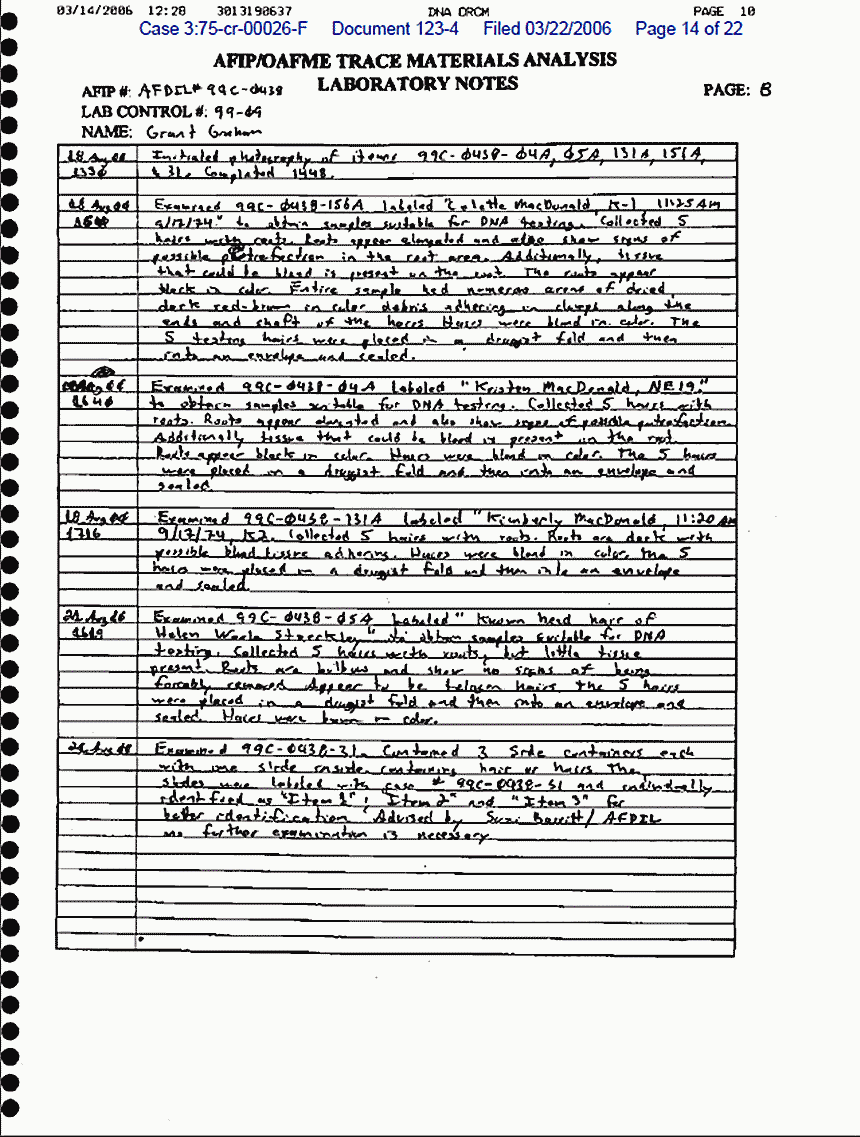 03/14/2006 12:28 3013190637 DNA DRCM PAGE 10
Case 3:75-cr-00026-F Document 123-4 Filed 03/22/2006 Page 14 of 22
AFIP/OAFME TRACE MATERIALS ANALYSIS
LABORATORY NOTES
AFIP #: AFDIL# 99C-0438
PAGE: 8
LAB CONTROL #: 99-09
NAME: Grant Graham
photography of items 99C-0438-04A, 05A, 131A, 156A,
1330 & 31. Completed 1448.
Examined 99C-0438-156A labeled "Colette MacDonald, K-1, 11:25AM
9/17/74." to obtain samples suitable for DNA testing. Collected 5
hairs with roots. Roots appear elongated and also show signs of
possible putrefaction in the root area. Additionally, tissue
that could be blood is present on the root. The roots appear
black in color. Entire sample had numerous areas of dried
dark red-brown in color debris adhering in clumps along the
ends and shaft of the hairs. Hairs were blond in color. The
5 testing hairs were placed in a druggist fold and then
into an envelope and sealed.
Examined 99C-0438-04A labeled "Kristen MacDonald, NE19."
1640 to obtain samples suitable for DNA testing. Collected 5 hairs with
roots. Roots appear elongated and also show signs of possible putrefaction.
Additionally tissue that could be blood is present on the root.
Roots appear black in color. Hairs were blond in color. The 5 hairs
were placed in a druggist fold and then into an envelope and
sealed.
Examined 99C-0438-131A labeled "Kimberly MacDonald, 11:20 AM
1716 9/17/74, K2. Collected 5 hairs with roots. Roots are dark with
possible blood tissue adhering. Hairs were blond in color. The 5
hairs were placed in a druggist fold and then into an envelope
and sealed.
Examined 99C-0438-05A Labeled "Known head hair of
Helen" to obtain samples suitable for DNA
testing. Collected 5 hairs with roots, but little tissue
present. Roots are bulbus and show no signs of being
forcably removed. Appear to be telogen hairs. The 5 hairs
were placed in a druggist fold and then into an envelope and
sealed. Hairs were brown in color.
Examined 99C-0438-31. Contained 3 Slide containers each
with one slide inside containing hair or hairs. The
slides were labeled with case # 99C-0438-31 and individually
identified as "Item 1", "Item 2" and "Item 3" for
better identification. Advised by Suzi Barritt/AFDIL
no further examination is necessary.